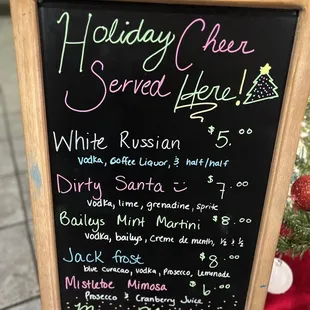 Holiday Cheer
Served Here!
White Russian $5.00
vodka, coffee liquor, & half/half
Dirty Santa $7.00
vodka, lime, grenadine, sprite
Baileys Mint Martini $8.00
vodka, baileys, creme de menth, ½ & ½
Jack frost $8.00
blue curacao, vodka, prosecco, lemonade
Mistletoe Mimosa $6.00
Prosecco & Cranberry Juice